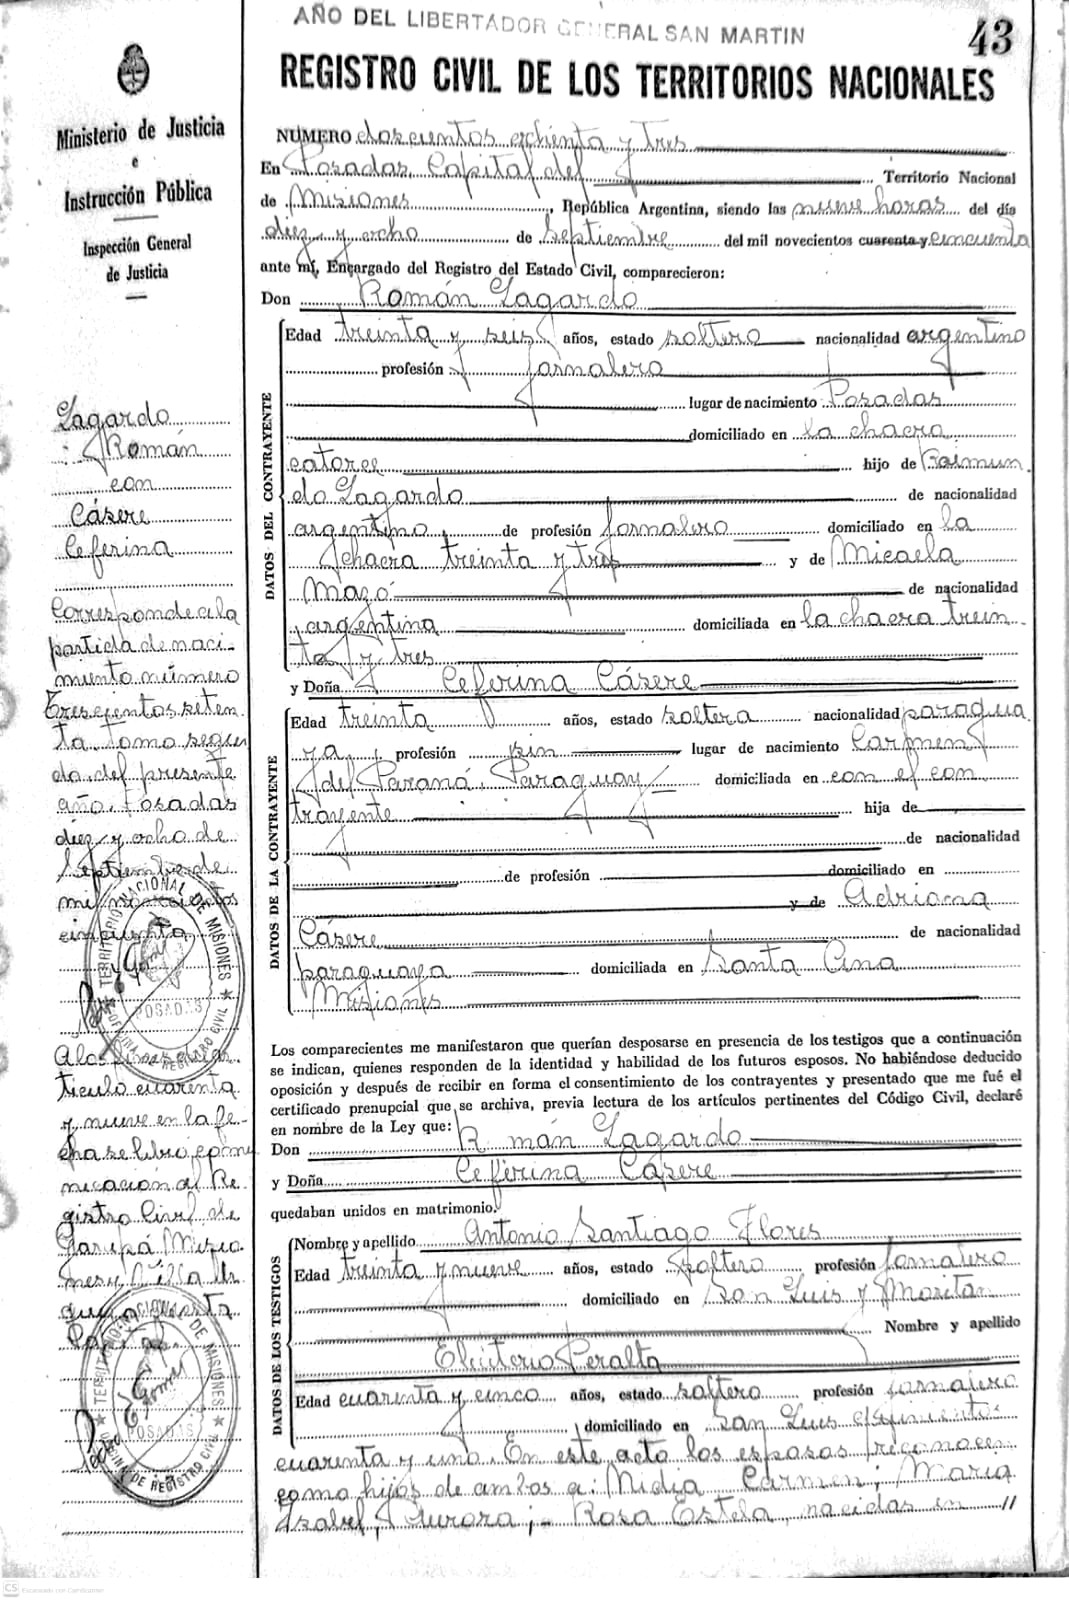 AÑO DEL LIBERTADOR GENERAL SAN MARTIN
43
REGISTRO CIVIL DE LOS TERRITORIOS NACIONALES
Ministerio de Justicia
e
Instrucción Pública
Inspección General
de Justicia
NÚMERO doscientos ochenta y tres
En Posadas, Capital del Territorio Nacional
de Misiones, República Argentina, siendo las nueve horas del día
diez y ocho de Septiembre del mil novecientos cuarenta y cincuenta
ante mí, Encargado del Registro del Estado Civil, comparecieron:
Don Román Lagardo
DATOS DEL CONTRAYENTE
Edad treinta y seis años, estado soltero nacionalidad argentino
profesión jornalero
lugar de nacimiento Posadas
domiciliado en la chacra
catorce hijo de Raimun
do Lagardo de nacionalidad
argentino de profesión jornalero domiciliado en la
chacra treinta y tres y de Micaela
Mazó de nacionalidad
argentina domiciliada en la chacra trein
ta y tres
y Doña Ceferina Cásere
DATOS DE LA CONTRAYENTE
Edad treinta años, estado soltera nacionalidad paragua
ya, profesión sin lugar de nacimiento Carmen
del Paraná, Paraguay domiciliada en con el con
trayente hija de
de nacionalidad
de profesión domiciliado en
y de Adriana
Cásere de nacionalidad
paraguaya domiciliada en Santa Ana
Misiones
Los comparecientes me manifestaron que querían desposarse en presencia de los testigos que a continuación
se indican, quienes responden de la identidad y habilidad de los futuros esposos. No habiéndose deducido
oposición y después de recibir en forma el consentimiento de los contrayentes y presentado que me fué el
certificado prenupcial que se archiva, previa lectura de los artículos pertinentes del Código Civil, declaré
en nombre de la Ley que:
Don R mán Lagardo
y Doña Ceferina Cásere
quedaban unidos en matrimonio.
DATOS DE LOS TESTIGOS
Nombre y apellido Antonio Santiago Flores
Edad treinta y nueve años, estado soltero profesión jornalero
domiciliado en San Luis y
Nombre y apellido
Eleuterio Peralta
Edad cuarenta y cinco años, estado soltero profesión jornalero
domiciliado en San Luis
cuarenta y uno. En este acto los esposos reconocen
como hijos de ambos a: Nidia Carmen; María
Isabel, Aurora; - Rosa Estela, nacidas en //
Lagardo
Román
con
Cásere
Ceferina
Corresponde a la
partida de naci-
miento número
Trescientos seten
ta, tomo segun
do, del presente
año. Posadas
diez y ocho de
Septiembre de
mil novecientos
cincuenta
TERRITORIO NACIONAL DE MISIONES
POSADAS
OFICINA DE REGISTRO CIVIL
A los fines del ar-
tículo cuarenta
y nueve en la fe-
cha se libró comu
nicación al Re-
gistro Civil de
Garupá, Misio
nes y Villa Ur
quiza
TERRITORIO NACIONAL DE MISIONES
POSADAS
OFICINA DE REGISTRO CIVIL
CS Escaneado con CamScanner